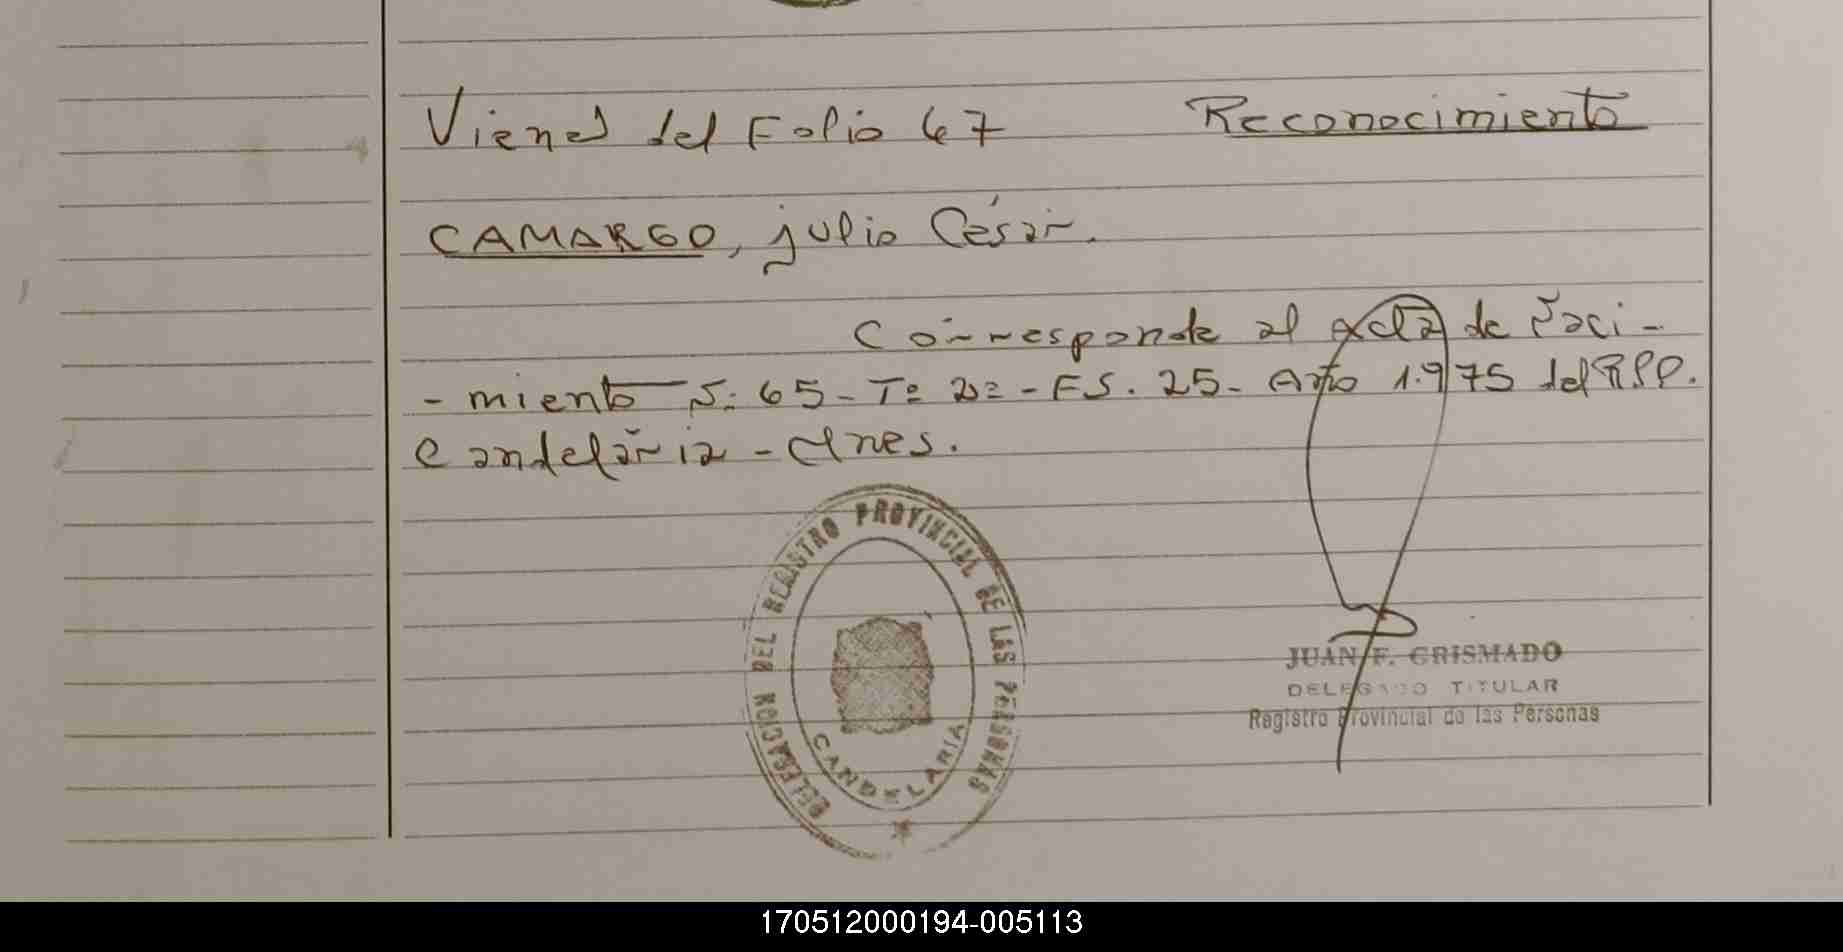 Viene del Folio 67 Reconocimiento
CAMARGO, julio César.
Corresponde al acta de Naci-
-miento N: 65 - Tº 2º - FS. 25 - Año 1.975 del RPP.
Candelaria - Mnes.
DELEGACION DEL REGISTRO PROVINCIAL DE LAS PERSONAS
CANDELARIA
JUAN F. GRISMADO
DELEGADO TITULAR
Registro Provincial de las Personas
170512000194-005113